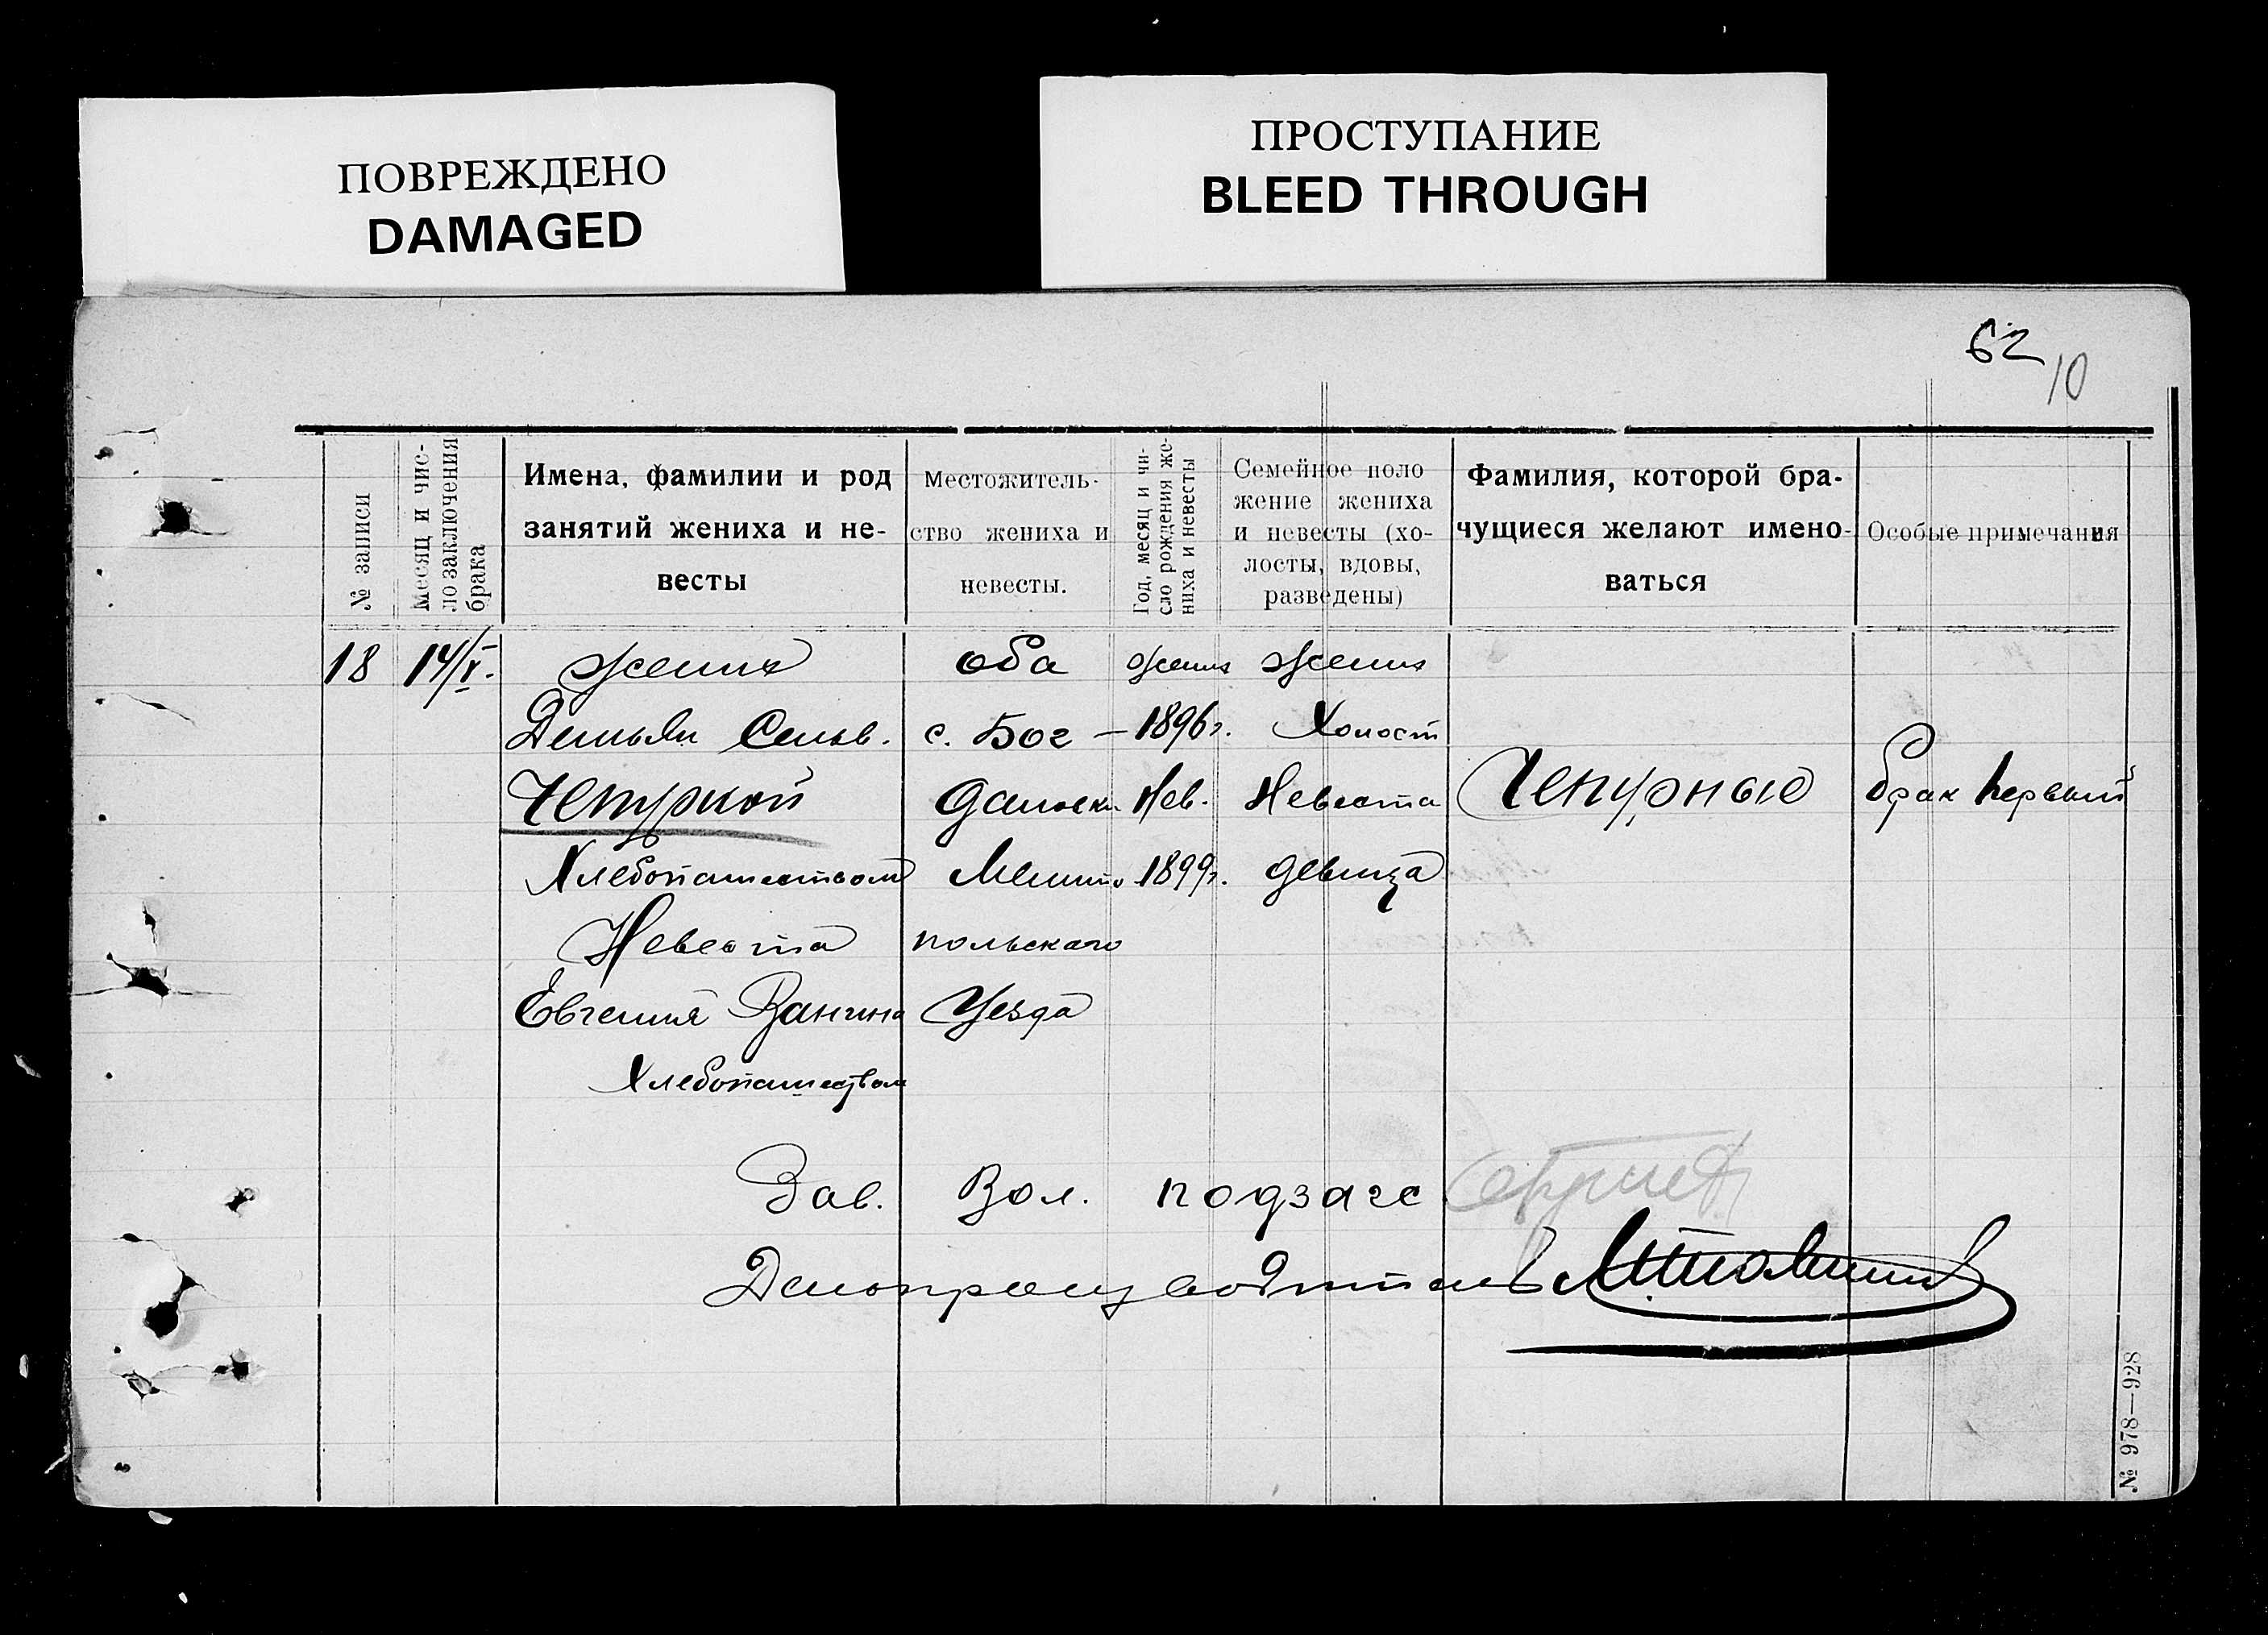 ПОВРЕЖДЕНО
DAMAGED
ПРОСТУПАНИЕ
BLEED THROUGH
62
10
№ записи
Месяц и чис-
ло заключения
брака
Имена, фамилии и род
занятий жениха и не-
весты
Местожитель-
ство жениха и
невесты.
Год, месяц и чи-
сло рождения же-
ниха и невесты
Семейное поло
жение жениха
и невесты (хо-
лосты, вдовы,
разведены)
Фамилия, которой бра-
чущиеся желают имено-
ваться
Особые примечания
18
14/V.
жених
Демьян
Чепурной
Хлебопашеством
Невеста
Евгения Ванина
Хлебопашеством
оба
с. Бог-
Мелито
польскаго
Уезда
жених
1896 г.
Нев.
1899 г.
жених
Холост
Невеста
девица
Чепурные
брак первый
Зав. Вол. подзагс
Делопроизводитель
№ 978—928